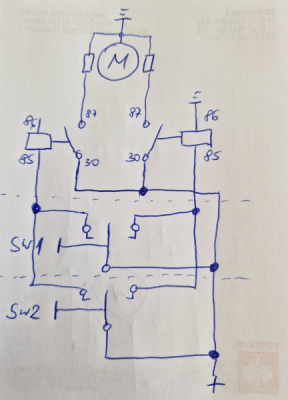 M
87
87
86
86
85
30
30
85
SW1
SW2
+